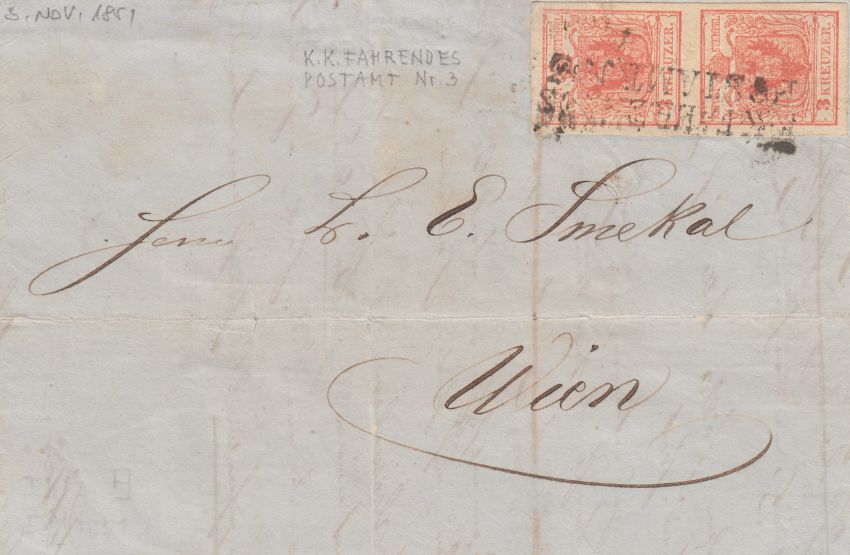 3. NOV. 1851
K.K. FAHRENDES
POSTAMT Nr. 3
3 KREUZER.
3 KREUZER.
Herrn Dr. E. Smekal
Wien